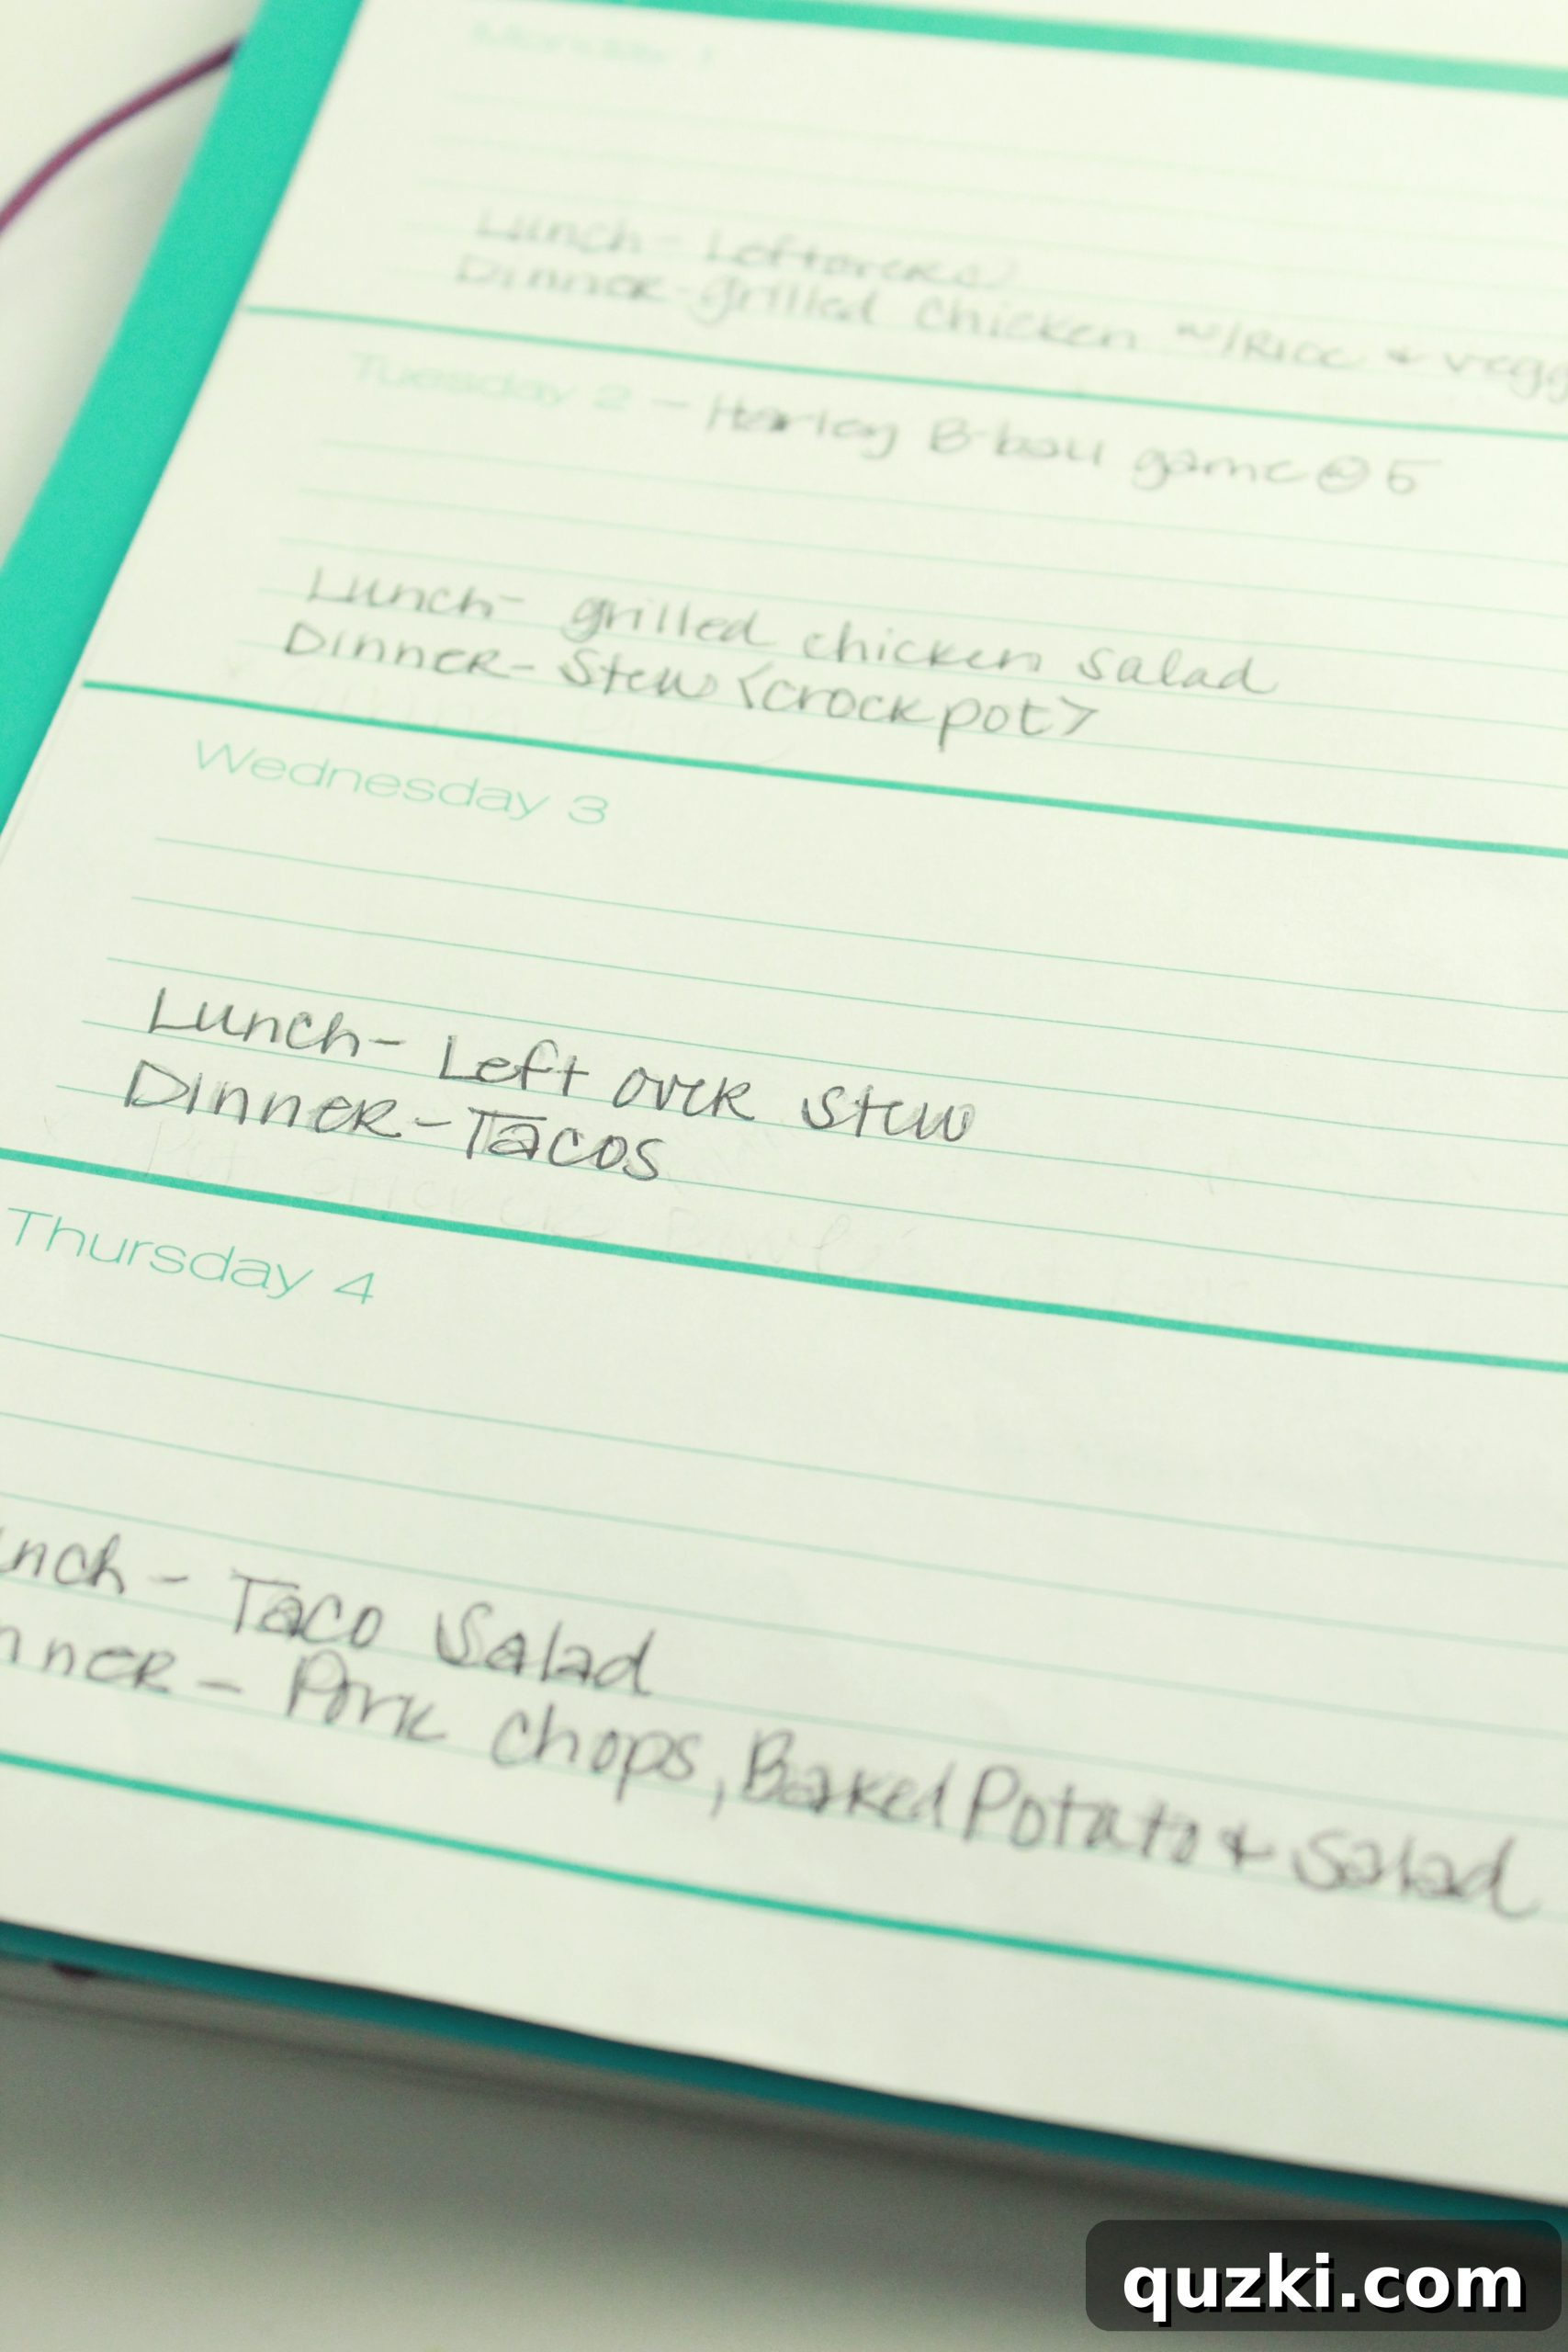 Monday 1
Lunch - Leftovers
Dinner - grilled chicken w/Rice & vegg
Tuesday 2 - Harley B-ball game @ 5
Lunch - grilled chicken salad
Dinner - Stew <crockpot>
Wednesday 3
Lunch - Left over stew
Dinner - Tacos
Thursday 4
unch - Taco Salad
nner - Pork chops, Baked Potato & Salad
quzki.com